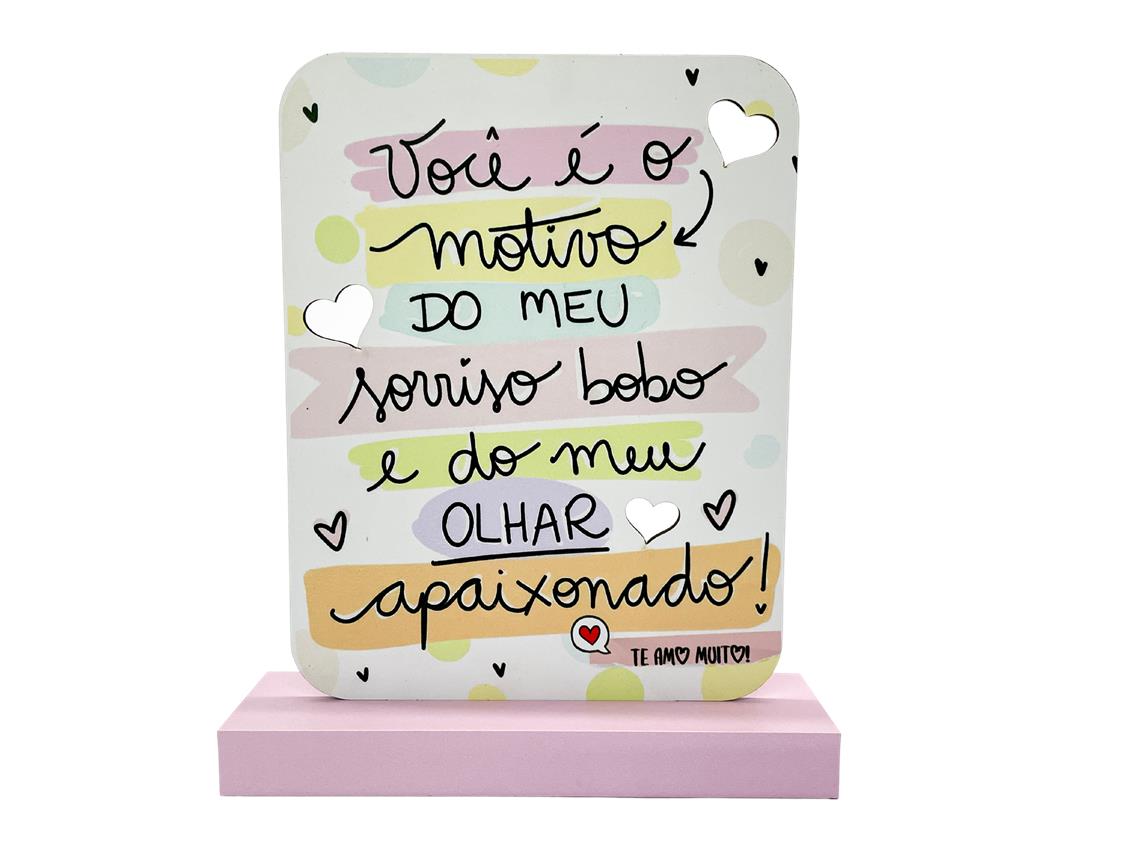 Você é o
motivo
DO MEU
sorriso bobo
e do meu
OLHAR
apaixonado!
TE AMO MUITO!